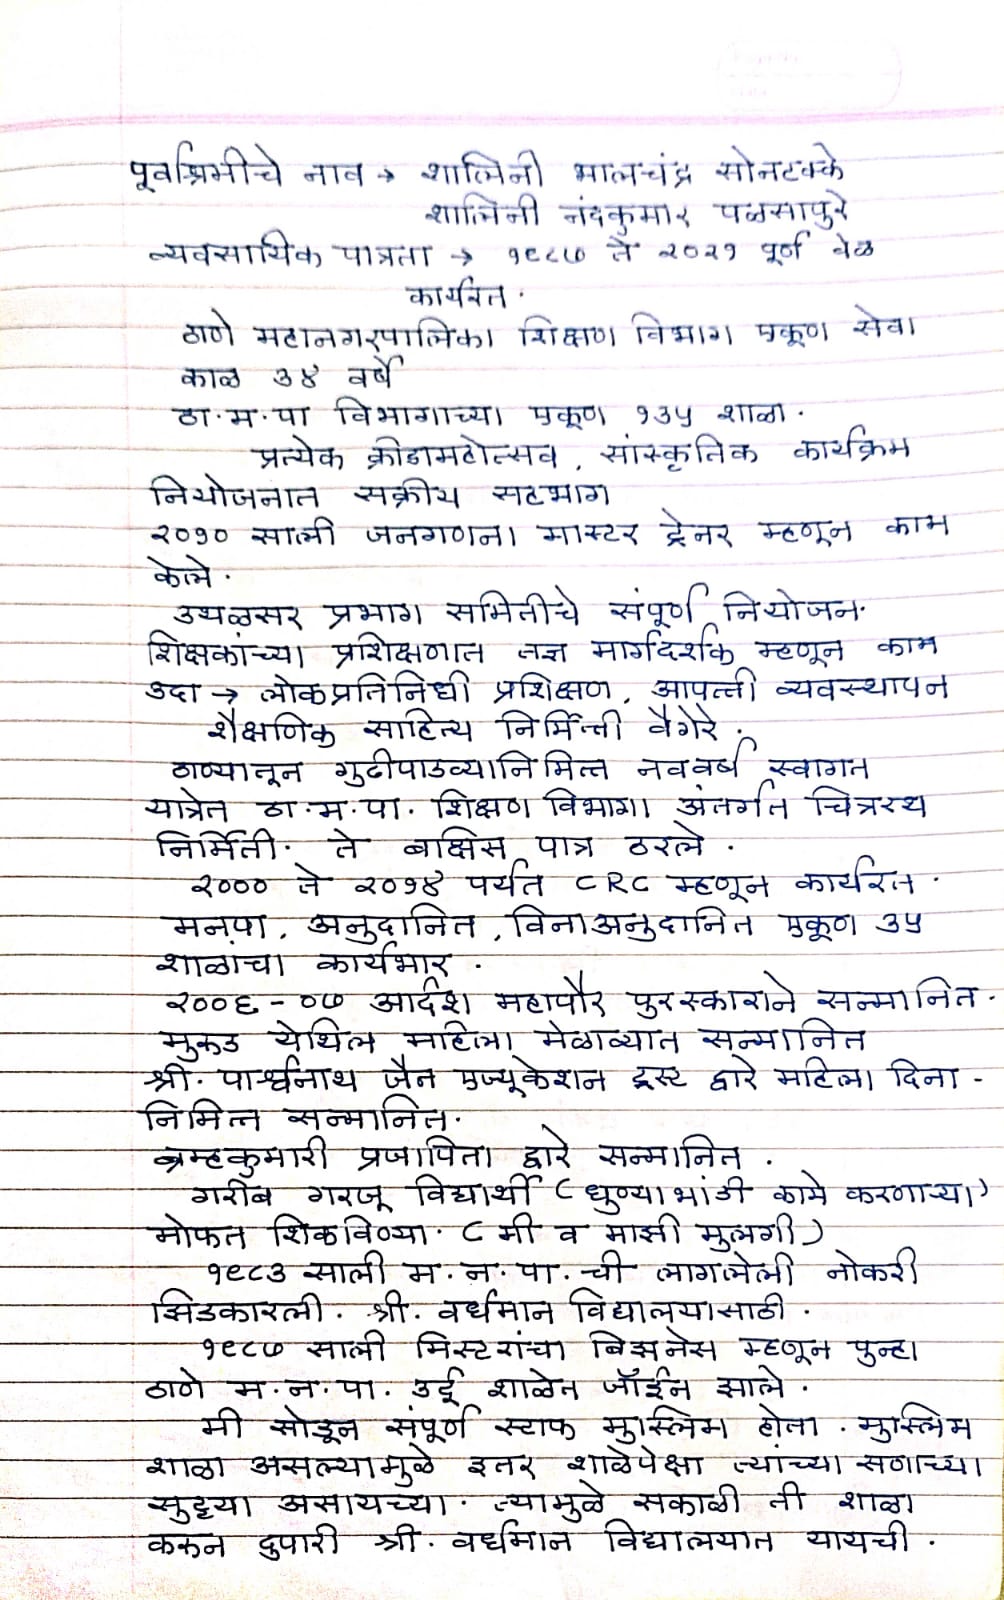 पूर्वाश्रमीचे नाव → शालिनी भालचंद्र सोनटक्के
शालिनी नंदकुमार पळसापुरे
व्यवसायिक पात्रता → १९८७ ते २०२१ पूर्ण वेळ
कार्यरत.
ठाणे महानगरपालिका शिक्षण विभाग एकूण सेवा
काळ ३४ वर्षे
ठा.म.पा विभागाच्या एकूण १३५ शाळा.
प्रत्येक क्रीडामहोत्सव, सांस्कृतिक कार्यक्रम
नियोजनात सक्रीय सहभाग
२०१० साली जनगणना मास्टर ट्रेनर म्हणून काम
केले.
उथळसर प्रभाग समितीचे संपूर्ण नियोजन.
शिक्षकांच्या प्रशिक्षणात तज्ञ मार्गदर्शक म्हणून काम
उदा → लोकप्रतिनिधी प्रशिक्षण, आपत्ती व्यवस्थापन
शैक्षणिक साहित्य निर्मिती वैगेरे.
ठाण्यातून गुढीपाडव्यानिमित्त नववर्ष स्वागत
यात्रेत ठा.म.पा. शिक्षण विभागा अंतर्गत चित्ररथ
निर्मिती. ते बक्षिस पात्र ठरले.
२००० ते २०१४ पर्यंत CRC म्हणून कार्यरत.
मनपा, अनुदानित, विनाअनुदानित एकूण ३५
शाळांचा कार्यभार.
२००६-०७ आर्दश महापौर पुरस्काराने सन्मानित.
मुकुंड येथिल महिला मेळाव्यात सन्मानित
श्री. पार्श्वनाथ जैन एज्यूकेशन ट्रस्ट द्वारे महिला दिना-
निमित्त सन्मानित.
ब्रम्हकुमारी प्रजापिता द्वारे सन्मानित.
गरीब गरजू विद्यार्थी (धुण्याभांडी कामे करणाऱ्या)
मोफत शिकविण्या. (मी व माझी मुलगी)
१९८३ साली म.न.पा.ची लागलेली नोकरी
झिडकारली. श्री. वर्धमान विद्यालयासाठी.
१९८७ साली मिस्टरांचा बिझनेस म्हणून पुन्हा
ठाणे म.न.पा. उर्दू शाळेत जॉईन झाले.
मी सोडून संपूर्ण स्टाफ मुस्लिम होता. मुस्लिम
शाळा असल्यामुळे इतर शाळेपेक्षा त्यांच्या सणाच्या
सुट्ट्या असायच्या. त्यामुळे सकाळी ती शाळा
करून दुपारी श्री. वर्धमान विद्यालयात यायची.